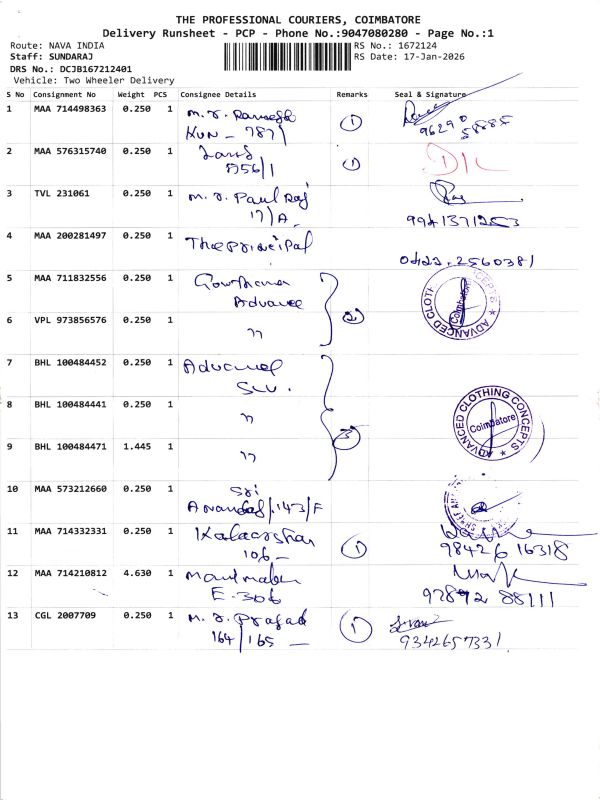 THE PROFESSIONAL COURIERS, COIMBATORE
Delivery Runsheet - PCP - Phone No.:9047080280 - Page No.:1
Route: NAVA INDIA
RS No.: 1672124
Staff: SUNDARAJ
RS Date: 17-Jan-2026
DRS No.: DCJB167212401
Vehicle: Two Wheeler Delivery
S No Consignment No Weight PCS Consignee Details Remarks Seal & Signature
1 MAA 714498363 0.250 1 M.R. Ramesh 1
KUN - 787/ 96290 58885
2 MAA 576315740 0.250 1 1 D/L
756/1
3 TVL 231061 0.250 1 M.R. Paul Raj
17/A 9941371253
4 MAA 200281497 0.250 1 The Principal 0422-2560381
5 MAA 711832556 0.250 1 Gowthama
Advance 2
ADVANCED CLOTHING CONCEPTS
Coimbatore
6 VPL 973856576 0.250 1 "
7 BHL 100484452 0.250 1 Advanced
8 BHL 100484441 0.250 1 " 3
ADVANCED CLOTHING CONCEPTS
Coimbatore
9 BHL 100484471 1.445 1 "
10 MAA 573212660 0.250 1 Sri
Anandas/143/F
11 MAA 714332331 0.250 1 1
106 - 98426 16318
12 MAA 714210812 4.630 1
E-306 97892 88111
13 CGL 2007709 0.250 1 M.R. Prasad 1
164/165 - 9342657331